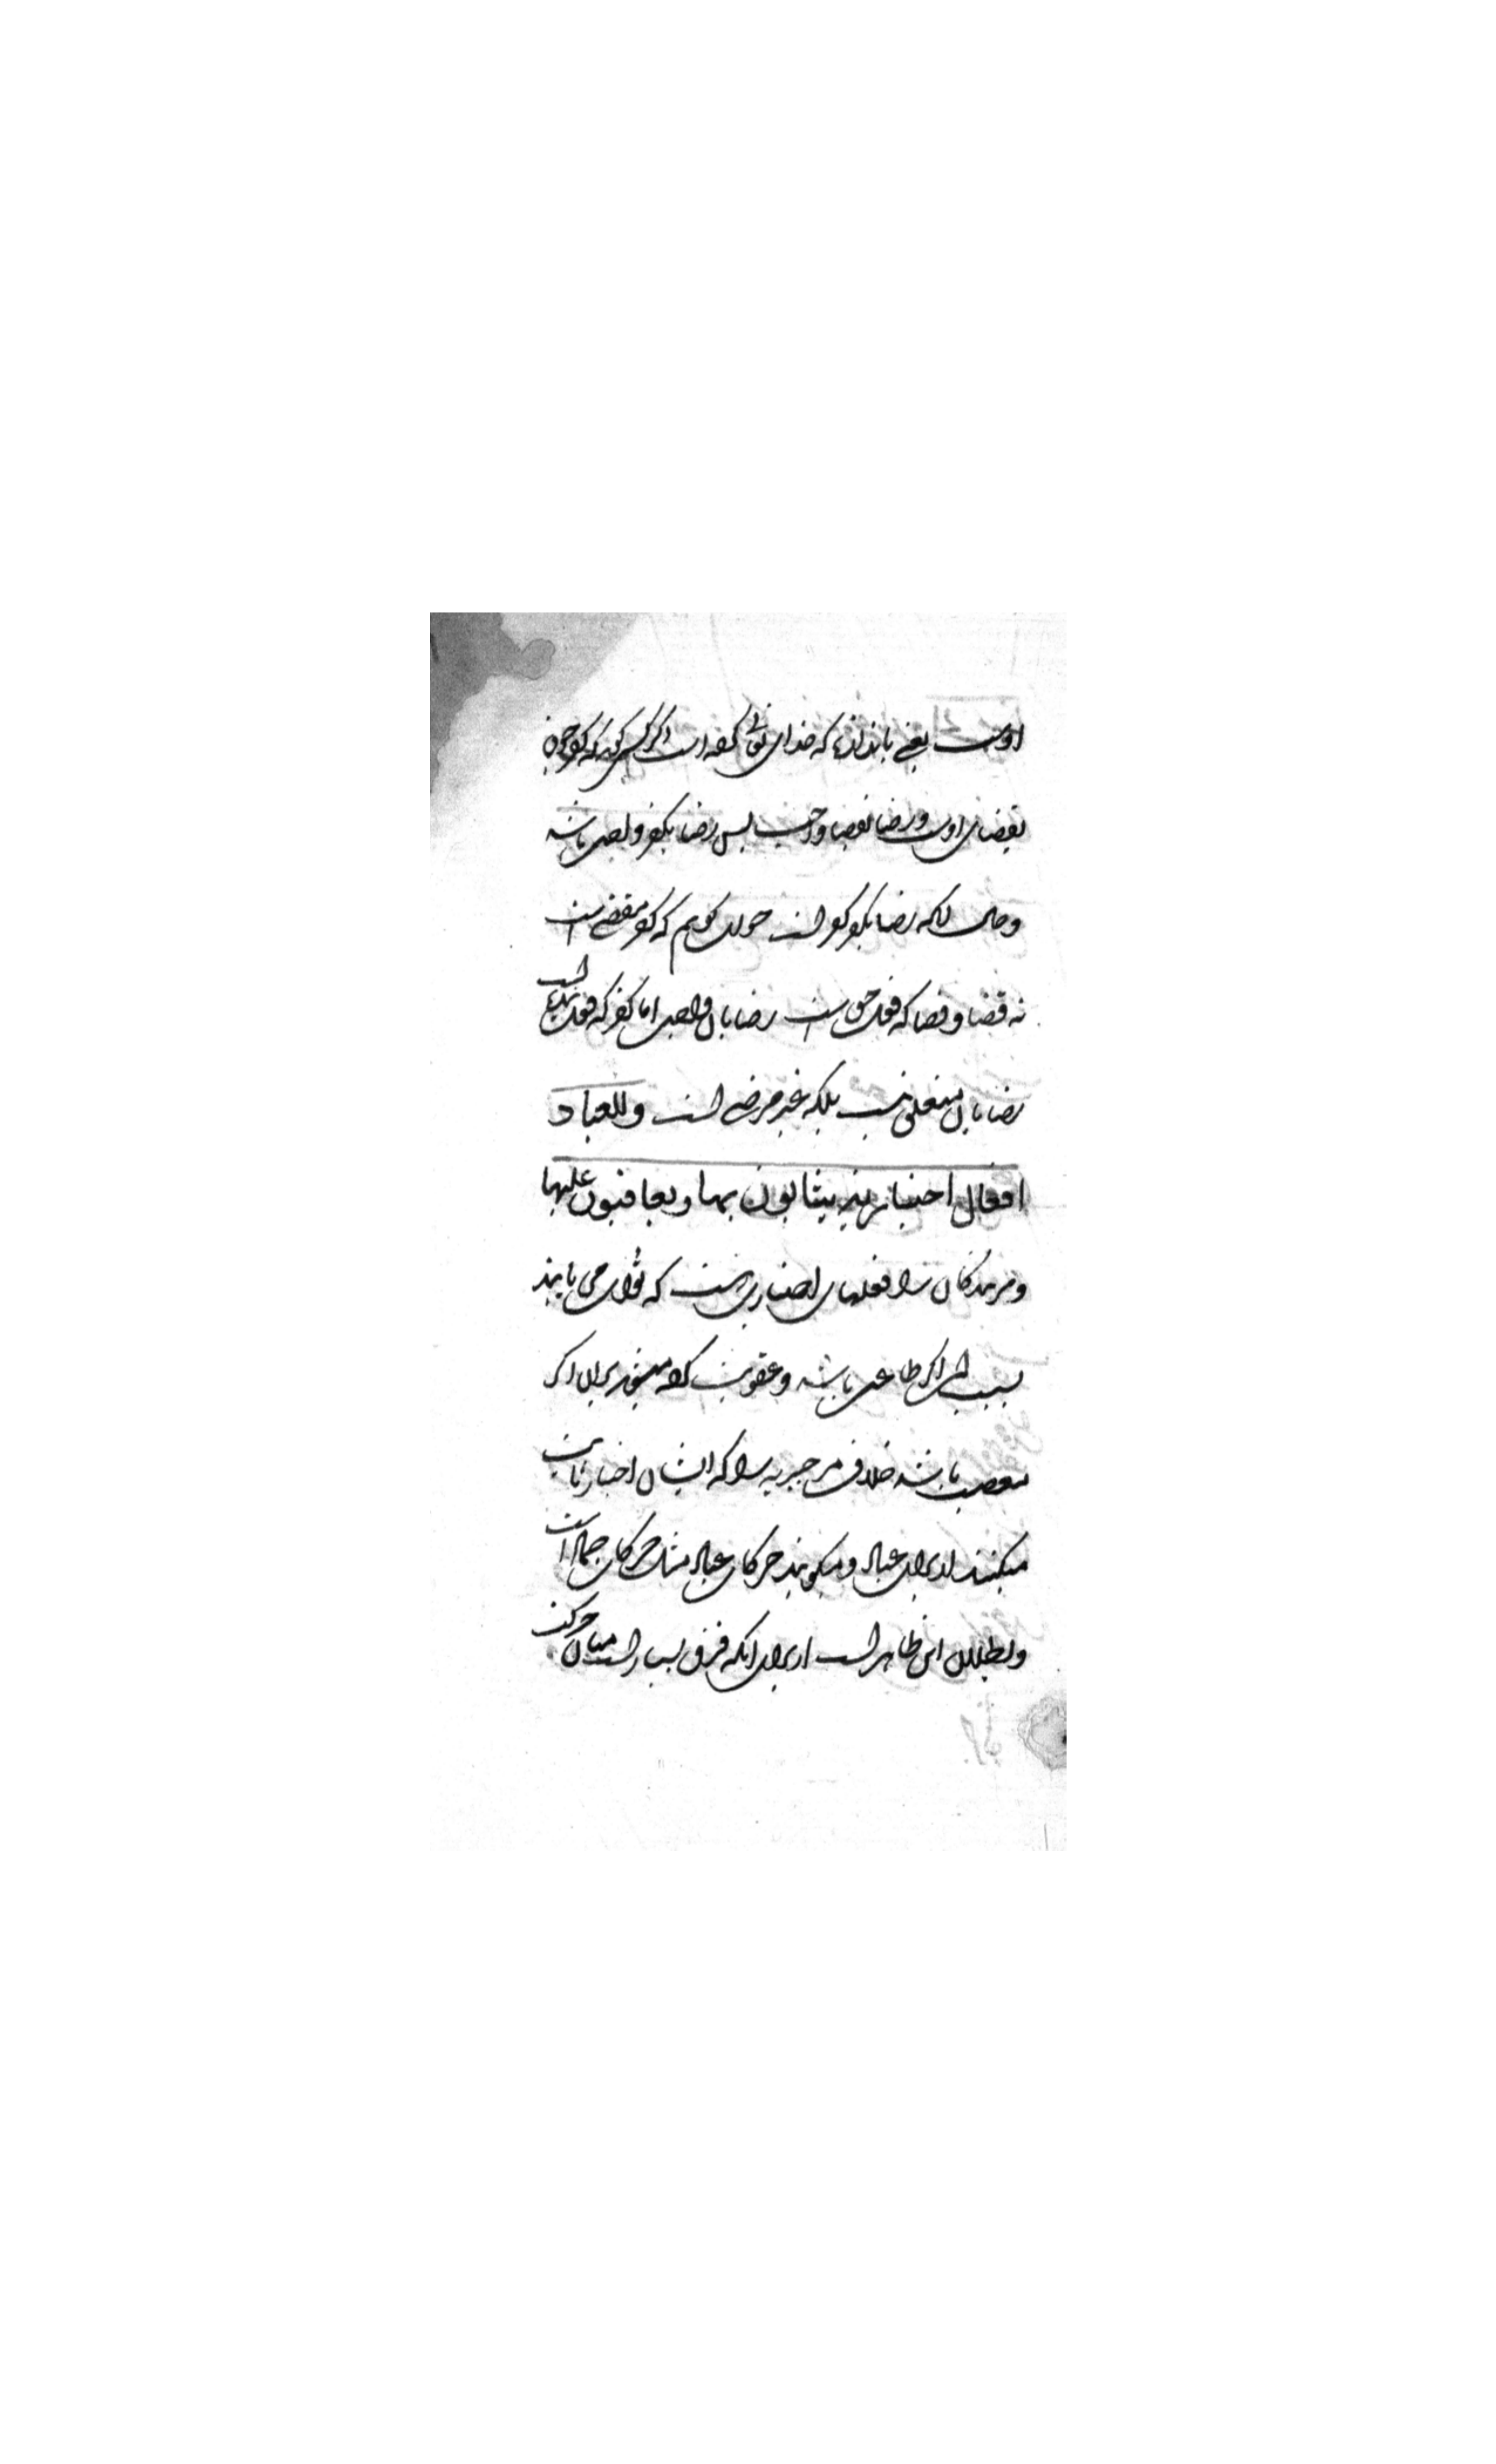 اوست یعنی باندازها که خدای تعالی کرده است اگر کسی گوید که کفر چون
بقضای اوست و رضا بقضا واجبست پس رضا بکفر واجب باشد
و حال آنکه رضا بکفر کفر است جواب گویم که کفر مقضی است
نه قضا و قضا که فعل حق است رضا بآن واجب اما کفر که فعل بنده است
رضا بآن متعلق نیست بلکه غیر مرضی است وللعباد
افعال اختیاریة یثابون بها و یعاقبون علیها
و مر بندگان را فعلهای اختیاریست که ثواب می یابند
بسبب آن اگر طاعت باشد و عقوبت کرده میشوند بران اگر
معصیت باشد خلاف مر جبریه را که ایشان اختیار ثابت
میکنند از برای عباد و میگویند حرکات عباد مثل حرکات جمادات است
و بطلان این ظاهر است از برای آنکه فرق بسیار است میان حرکت